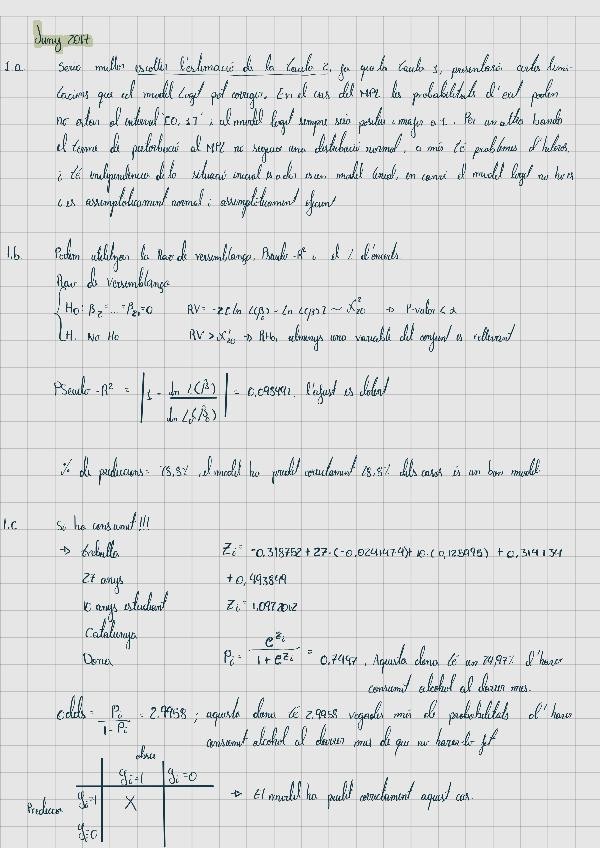 Juny 2017
1.a. Seria millor escollir l'estimació de la taula 2, ja que la taula 1, presentaria certes limi-
tacions que el model Logit pot corregir. En el cas del MPL les probabilitats d'èxit poden
no estar al interval [0,1] i al model logit sempre serà positiu i major a 1. Per un altre banda
el terme de pertorbació al MPL no segueix una distribució normal, a més té problemes d'heteros.
i té independència de la situació inicial es a dir es un model lineal, en canvi el model logit no ho es
i es assimptoticament normal i assimptoticament eficient
1.b. Podem utilitzar la Rao de versemblança, Pseudo-R², i el % d'encerts.
Rao de versemblança
H0: β2 = ... = β20 = 0 RV = -2[ln L(β) - ln L(β)] ~ X²20 → P-valor < α
H1: No H0 RV > X²20 → RH0, almenys una variable del conjunt es rellevant
Pseudo-R² = | 1 - ln L(β) / ln L(β0) | = 0,095492, l'ajust es dolent
% de prediccions = 78,8%, el model ha predit correctament 78,8% dels casos es un bon model
1.c Si ha consumit!!!
→ treballa Zi = -0,318752 + 27·(-0,0241474) + 10·(0,125995) + 0,314134
27 anys + 0,493849
10 anys estudiant Zi = 1,0972012
Catalunya
Dona Pi = e^Zi / 1 + e^Zi = 0,7497, Aquesta dona té un 74,97% d'haver
consumit alcohol al darrer mes.
odds = Pi / 1-Pi = 2.9958; aquesta dona té 2.9958 vegades més de probabilitats d'haver
consumit alcohol al darrer mes de que no haver-lo fet
obser
yi=1 yi=0
Prediccio yi=1 X → El model ha predit correctament aquest cas.
yi=0